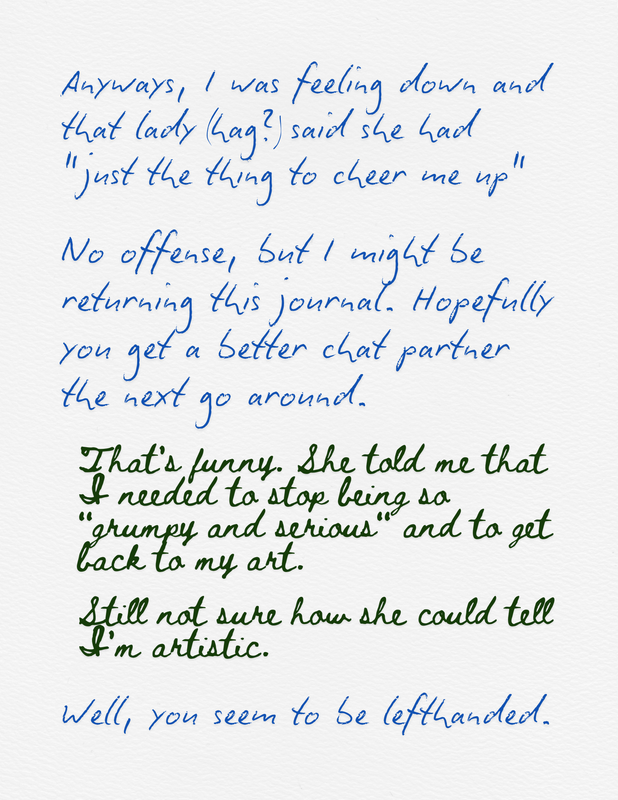 Anyways, I was feeling down and
that lady (hag?) said she had
"just the thing to cheer me up"
No offense, but I might be
returning this journal. Hopefully
you get a better chat partner
the next go around.
That's funny. She told me that
I needed to stop being so
"grumpy and serious" and to get
back to my art.
Still not sure how she could tell
I'm artistic.
Well, you seem to be lefthanded.